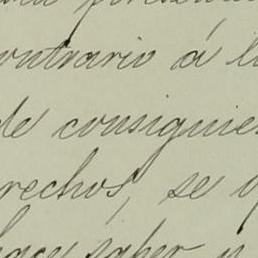 contrario á
de consiguien
rechos, se
hace saber y